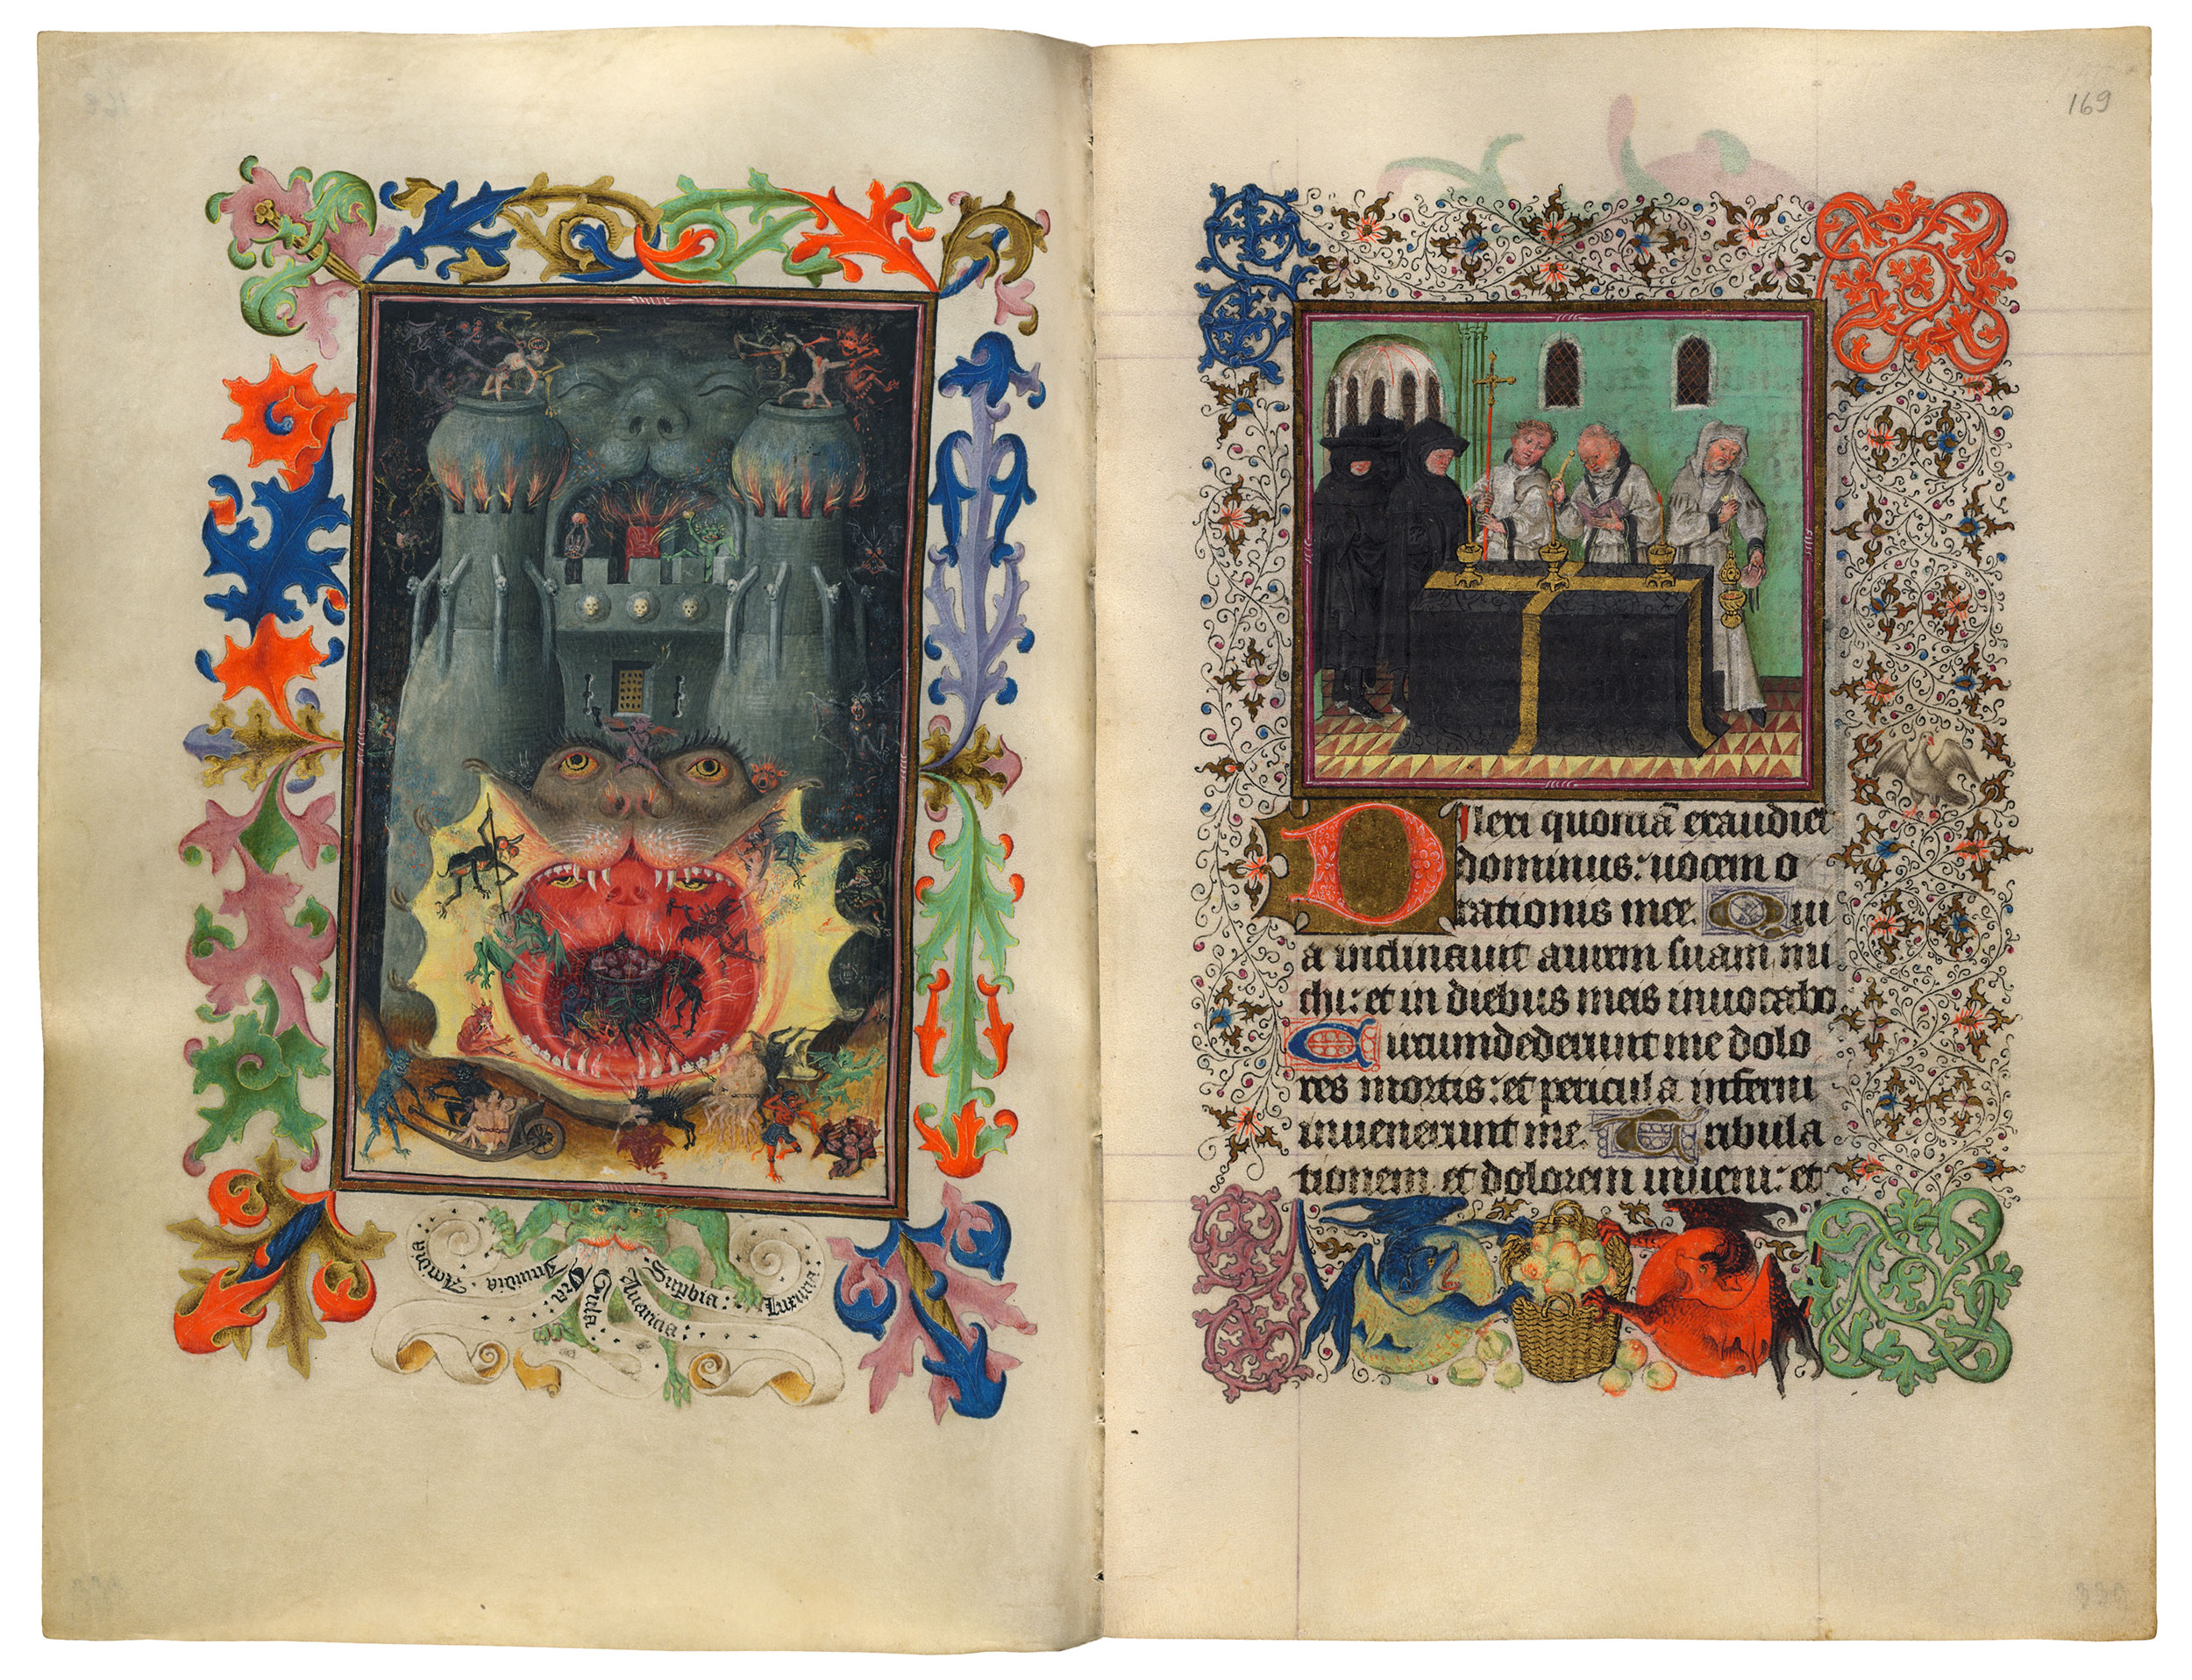 Acidia
Inuidia
Ira:
Gula:
Auaricia:
Supbia:
Luxuria:
169
Dilexi quoniā exaudiet
dominus: uocem o
rationis mee. Qui
a inclinauit aurem suam mi
chi: et in diebus meis inuocabo
Circumdederunt me dolo
res mortis: et pericula inferni
inuenerunt me. Tribula
tionem et dolorem inueni: et